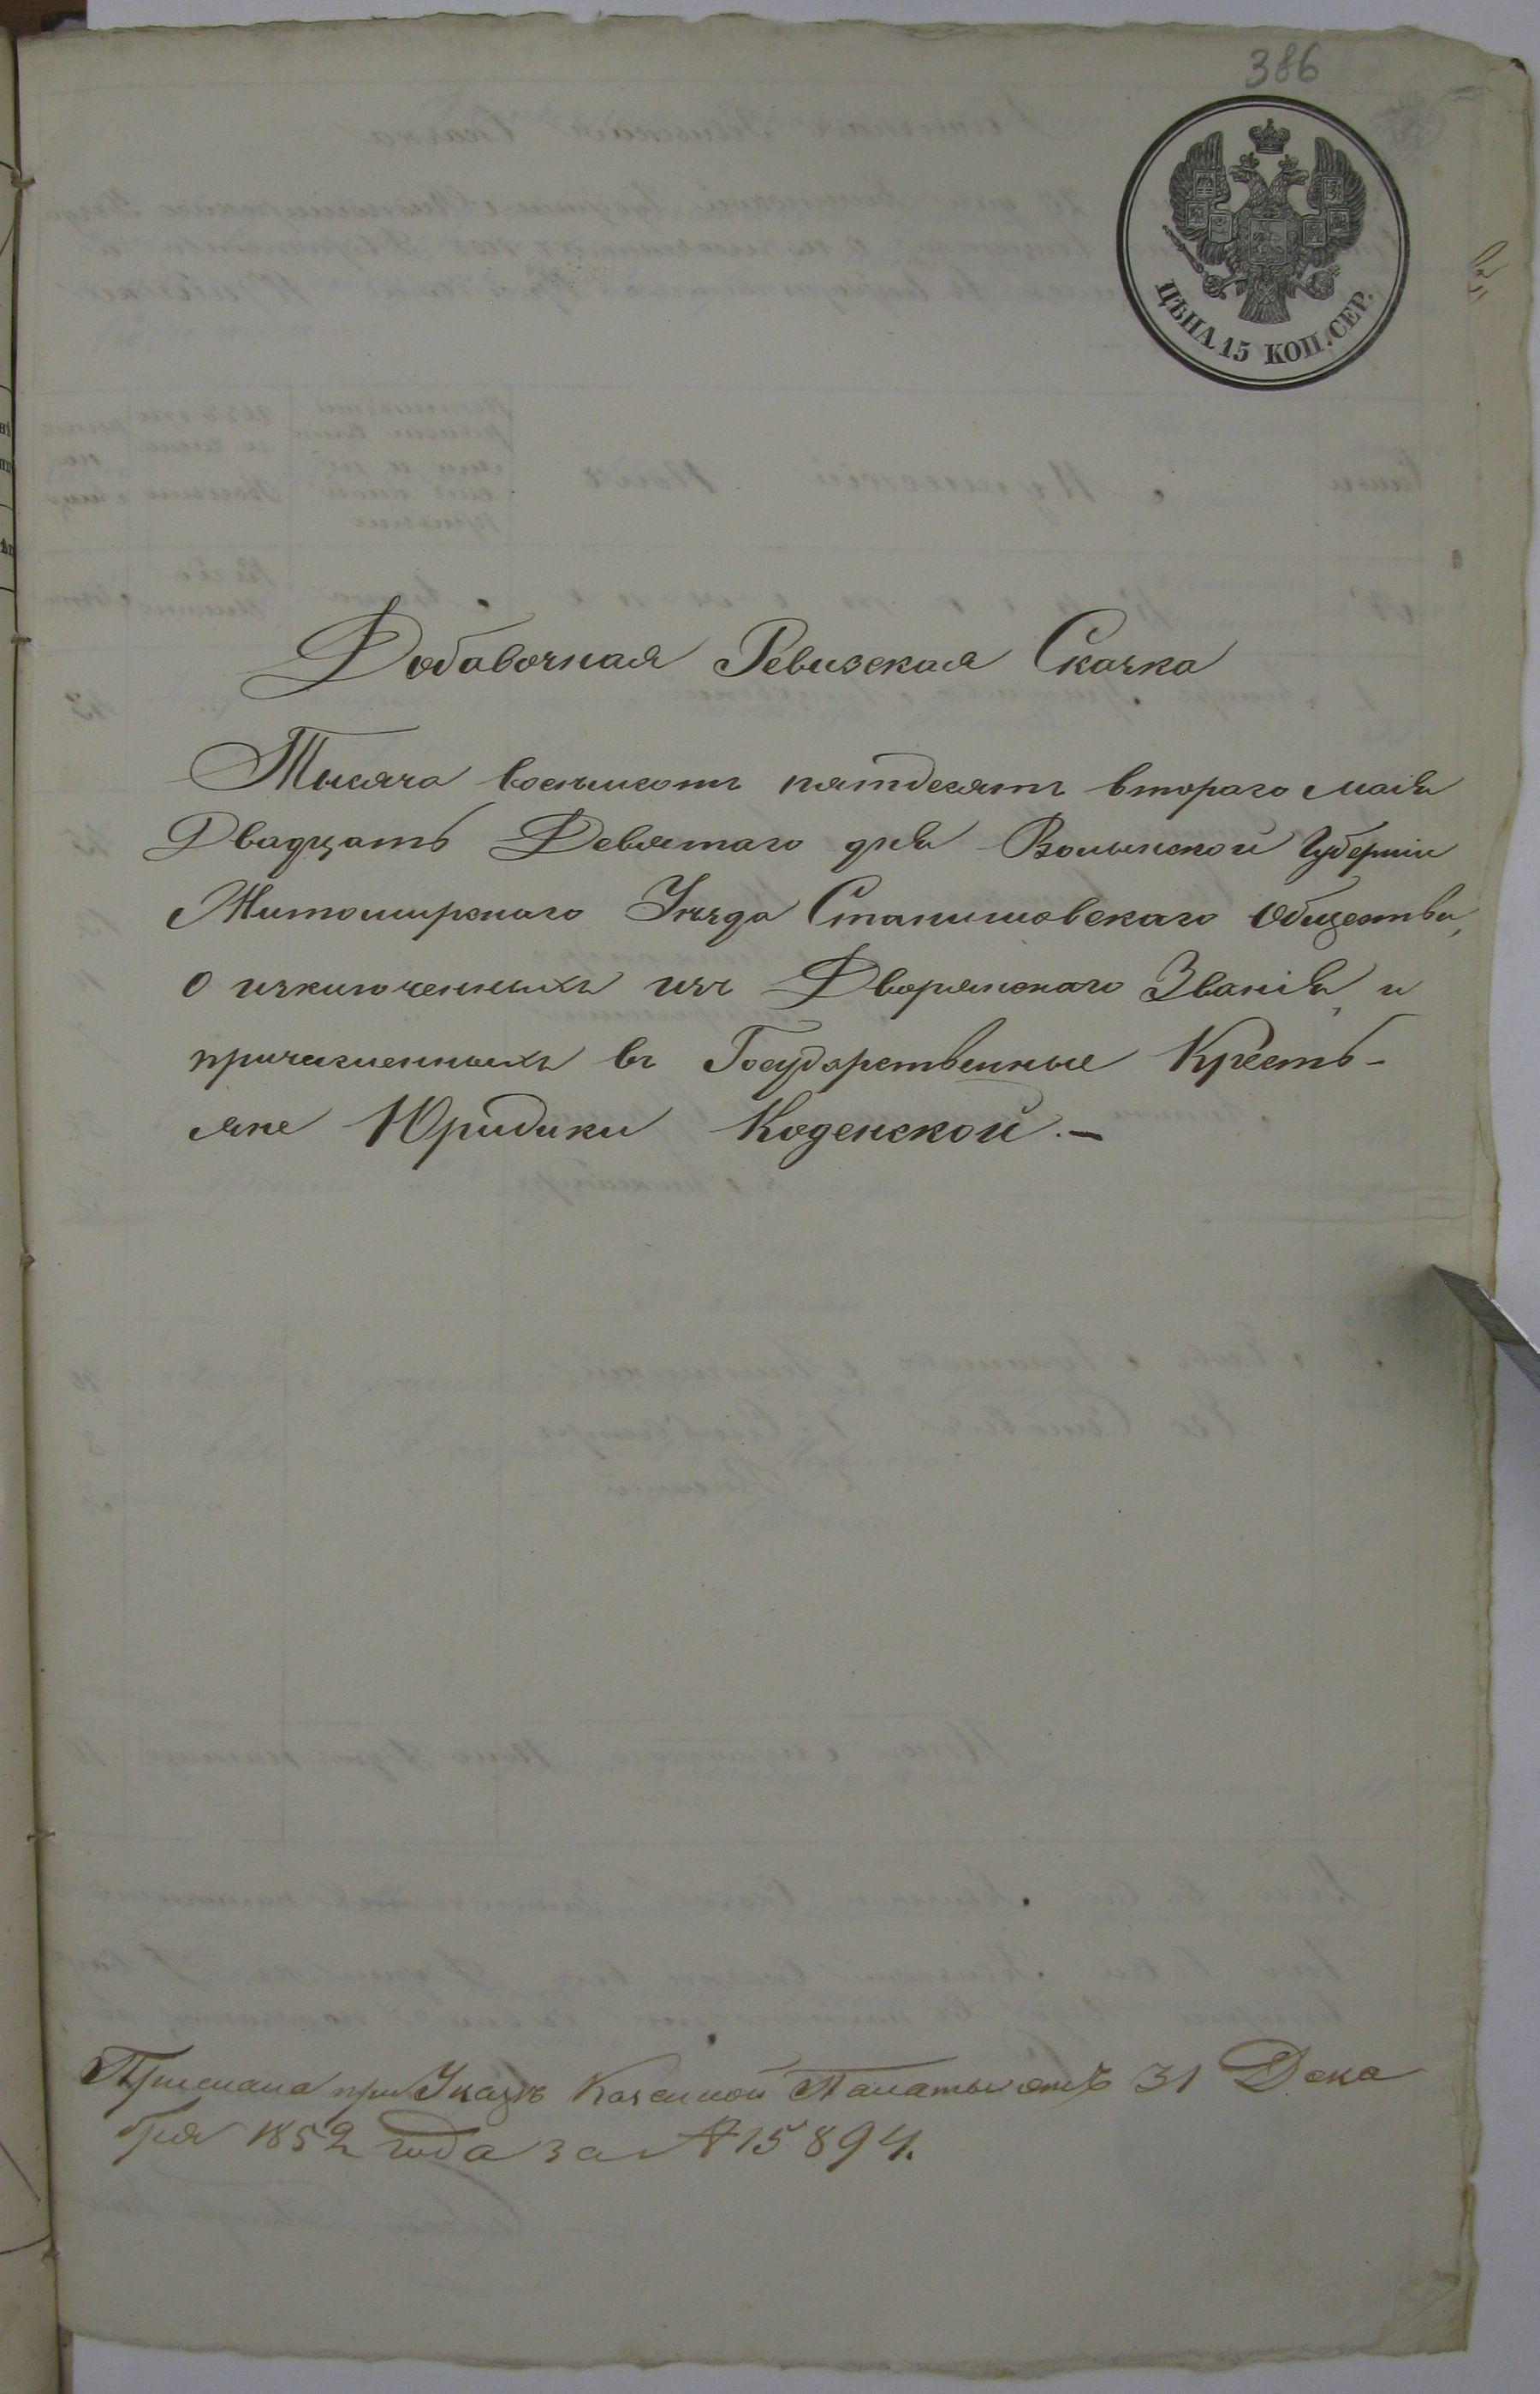 386
ЦѢНА 15 КОП. СЕР.
Добавочная Ревизская Скачка
Тысяча восемьсотъ пятдесятъ втораго маія
Двадцать Девятаго дня Волынской Губерніи
Житомирскаго Уѣзда Станишовскаго Общества,
о изключенныхъ изъ Дворянскаго Званія и
причисленныхъ въ Государственные Кресть-
яне Юридики Коденской. —
Прислана при Указѣ Казенной Палаты отъ 31 Дека
бря 1852 года за № 15894.